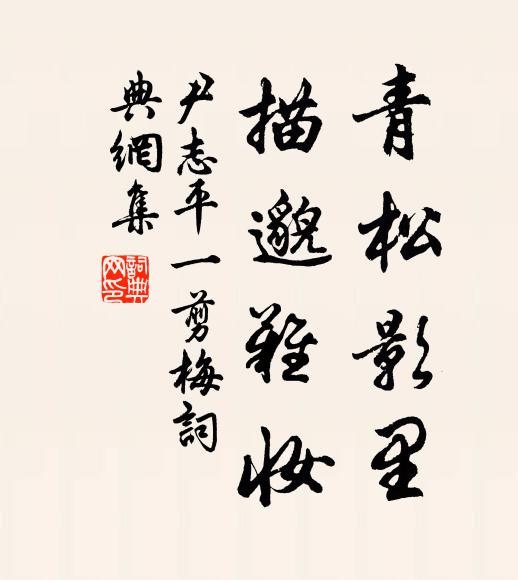 青松影里
描邈难妆
尹志平一剪梅詞
典網集
詞典網印